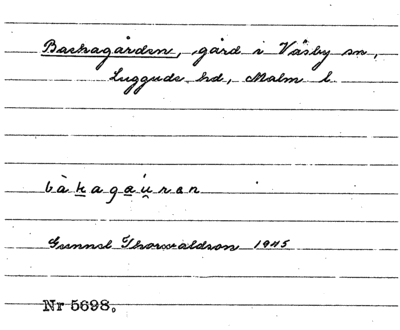 Backagården, gård i Väsby sn,
Luggude hd, Malm l
bàkagaúran
Gunnel Thorwaldson 1945
Nr 5698.